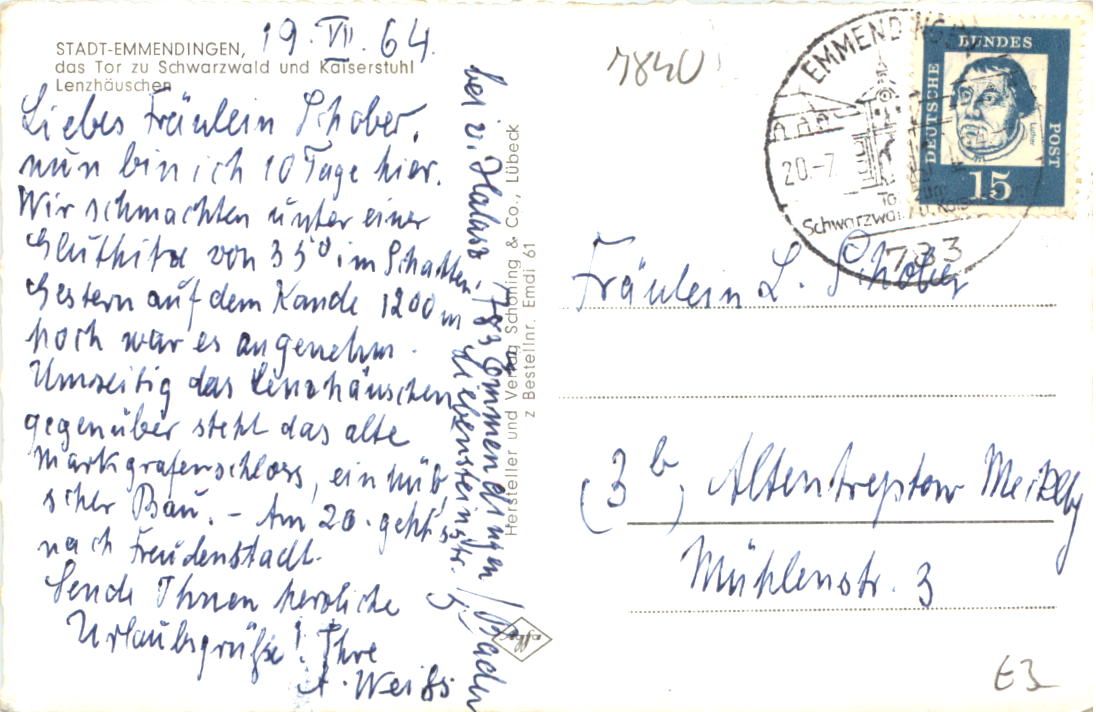 STADT-EMMENDINGEN,
das Tor zu Schwarzwald und Kaiserstuhl
Lenzhäuschen
19. VII. 64.
Liebes Fräulein Schober,
nun bin ich 10 Tage hier.
Wir schmachten unter einer
Gluthitze von 35° im Schatten.
Gestern auf dem Kande 1200 m
hoch war es angenehm.
Umseitig das Lenzhäuschen
gegenüber steht das alte
Markgrafenschloss, ein hüb,
scher Bau. - Am 20. geht's
nach Freudenstadt.
Sende Ihnen herzliche
Urlaubsgrüße! Ihre
A. Weiss
bei v. 783 Emmendingen / Baden
Liebensteinstr. 5
Hersteller und Verlag Schöning & Co., Lübeck
z Bestellnr. Emdi 61
7840
EMMENDINGEN
20.-7.
Schwarzwald
DEUTSCHE
BUNDES
POST
Luther
15
783
Fräulein L. Schober
(3b) Altentreptow
Mühlenstr. 3
E3